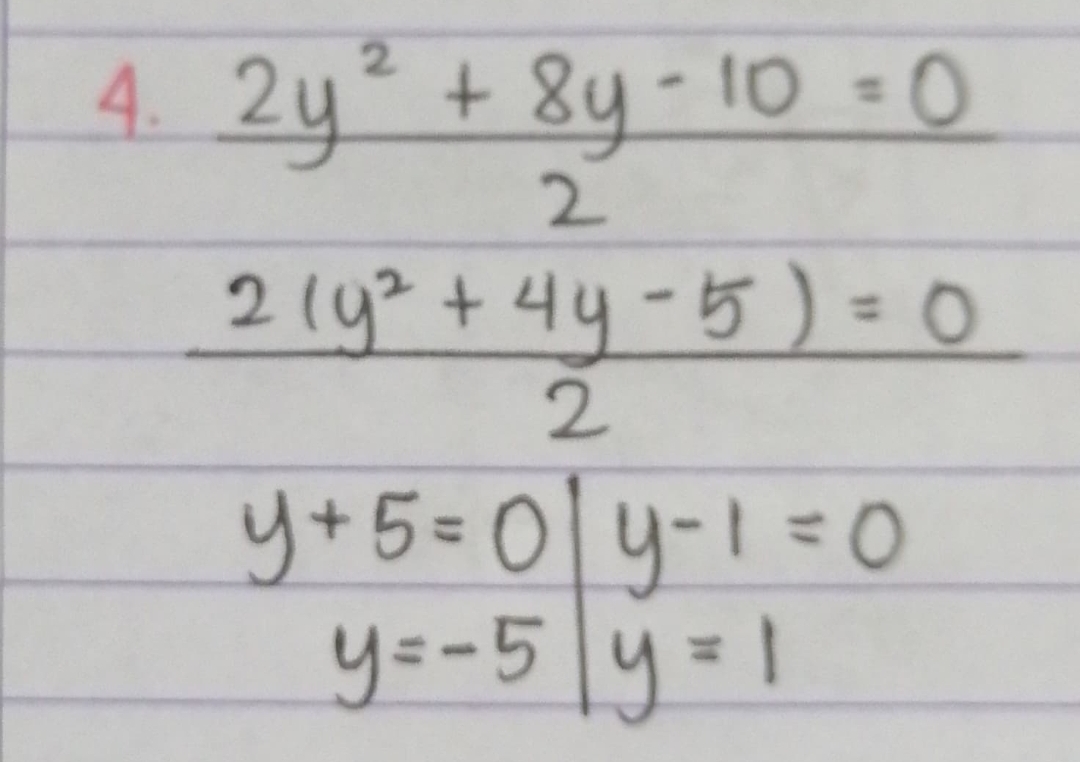 4. 2y² + 8y - 10 = 0
2
2(y² + 4y - 5) = 0
2
y + 5 = 0 | y - 1 = 0
y = -5 | y = 1